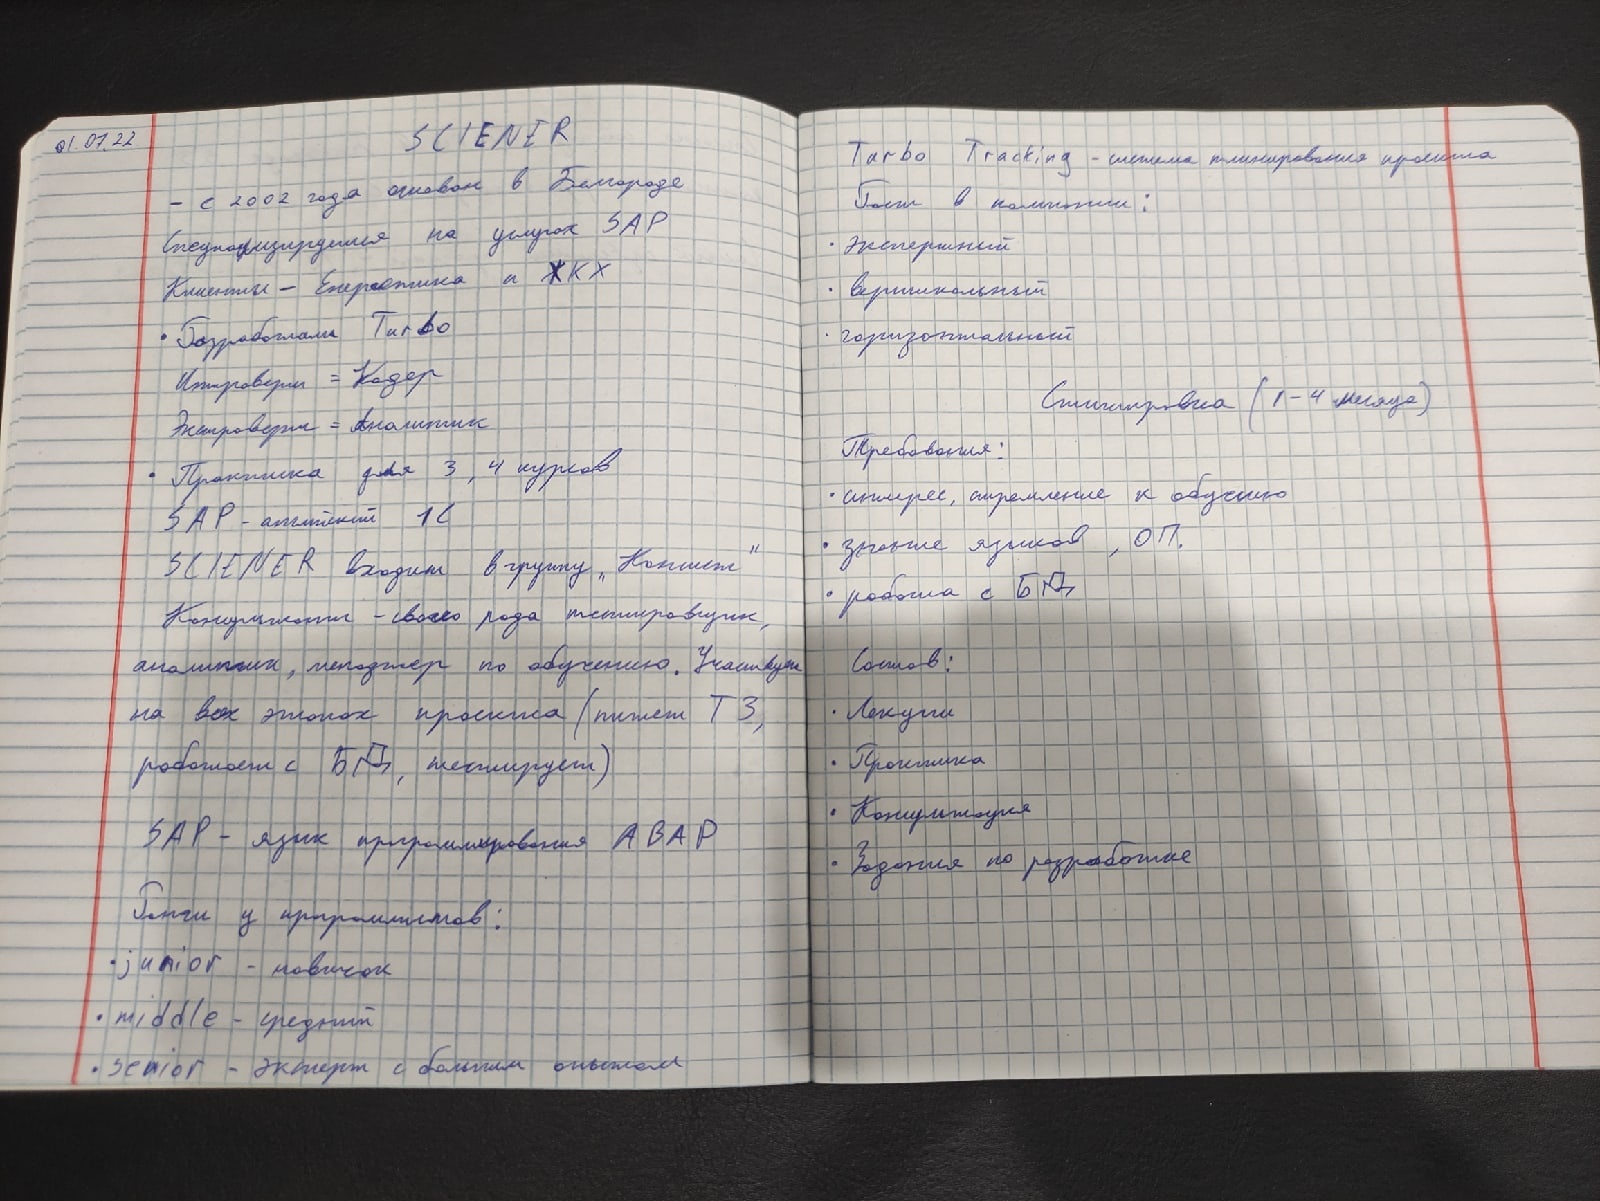 01.07.22
SCIENER
- с 2002 года основан в Белгороде
Специфицируется на услугах SAP
Клиенты - Енергетика и ЖКХ
· Разработали Turbo
Интроверт = Кодер
Экстроверт = Аналитик
· Практика для 3, 4 курсов
SAP - английский 1С
SCIENER входит в группу „Концепт"
Консультант - своего рода тестировщик,
аналитик, менеджер по обучению. Участвует
на всех этапах проекта (пишет ТЗ,
работает с БД, тестирует)
SAP - язык программирования ABAP
Ранги у программистов:
· junior - новичок
· middle - средний
· senior - эксперт с большим опытом
Turbo Tracking - система планирования проекта
Рост в компании:
· экспертный
· вертикальный
· горизонтальный
Стажировка (1-4 месяца)
Требования:
· интерес, стремление к обучению
· знание языков, ОП.
· работа с БД
Состав:
· Лекции
· Практика
· Консультация
· Задания по разработке